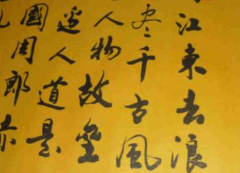 江東去浪
尽千古風
人物故壘
邊人道是
國周郎赤